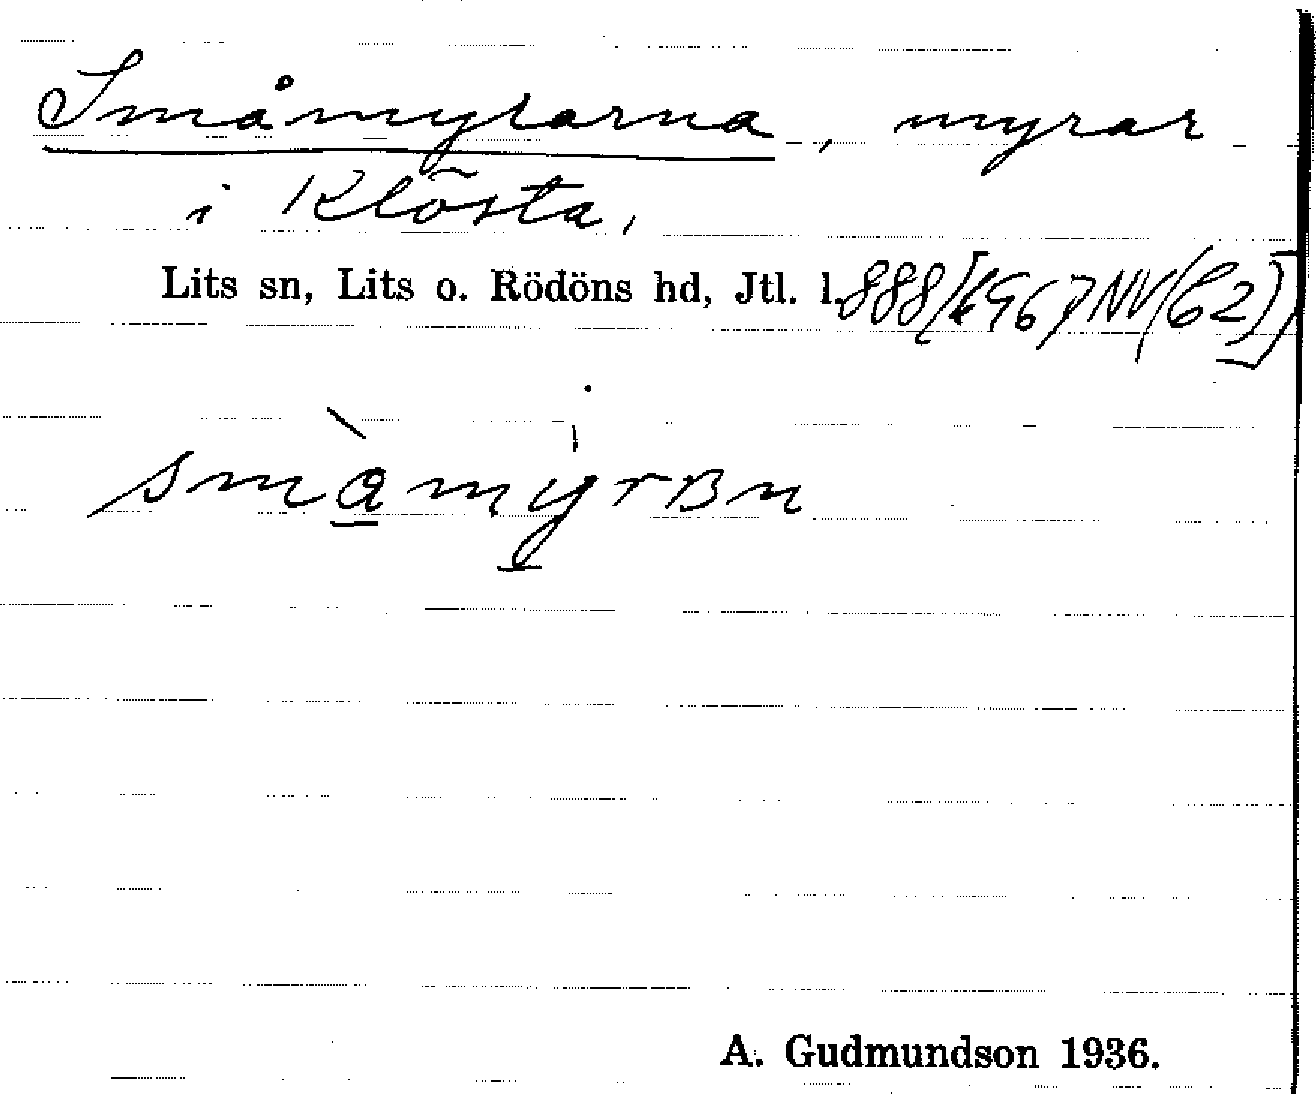 Småmyrarna, myrar
i Klösta,
Lits sn, Lits o. Rödöns hd, Jtl. l.
småmyrʙn
A. Gudmundson 1936.